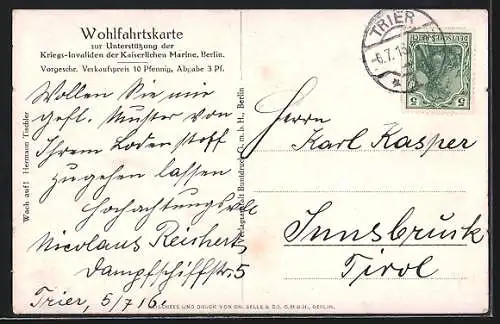 Wohlfahrtskarte
zur Unterstützung der
Kriegs-Invaliden der Kaiserlichen Marine, Berlin.
Vorgeschr. Verkaufspreis 10 Pfennig, Abgabe 3 Pf.
Wollen Sie mir
gefl. Muster von
Ihrem Lodenstoff
zugehen lassen
Hochachtungsvoll
Nicolaus Reichert,
Dampfschiffstr. 5
Trier, 5/7 16.
Wach auf! Hermann Tischler
Verlagsanstalt Buntdruck G. m. b. H., Berlin
TRIER
-6.7.16
DEUTSCHES REICH
5 5
Herrn
Karl Kasper
Innsbruck
Tirol
UND DRUCK VON DR. SELLE & CO. G.M.B.H., BERLIN.